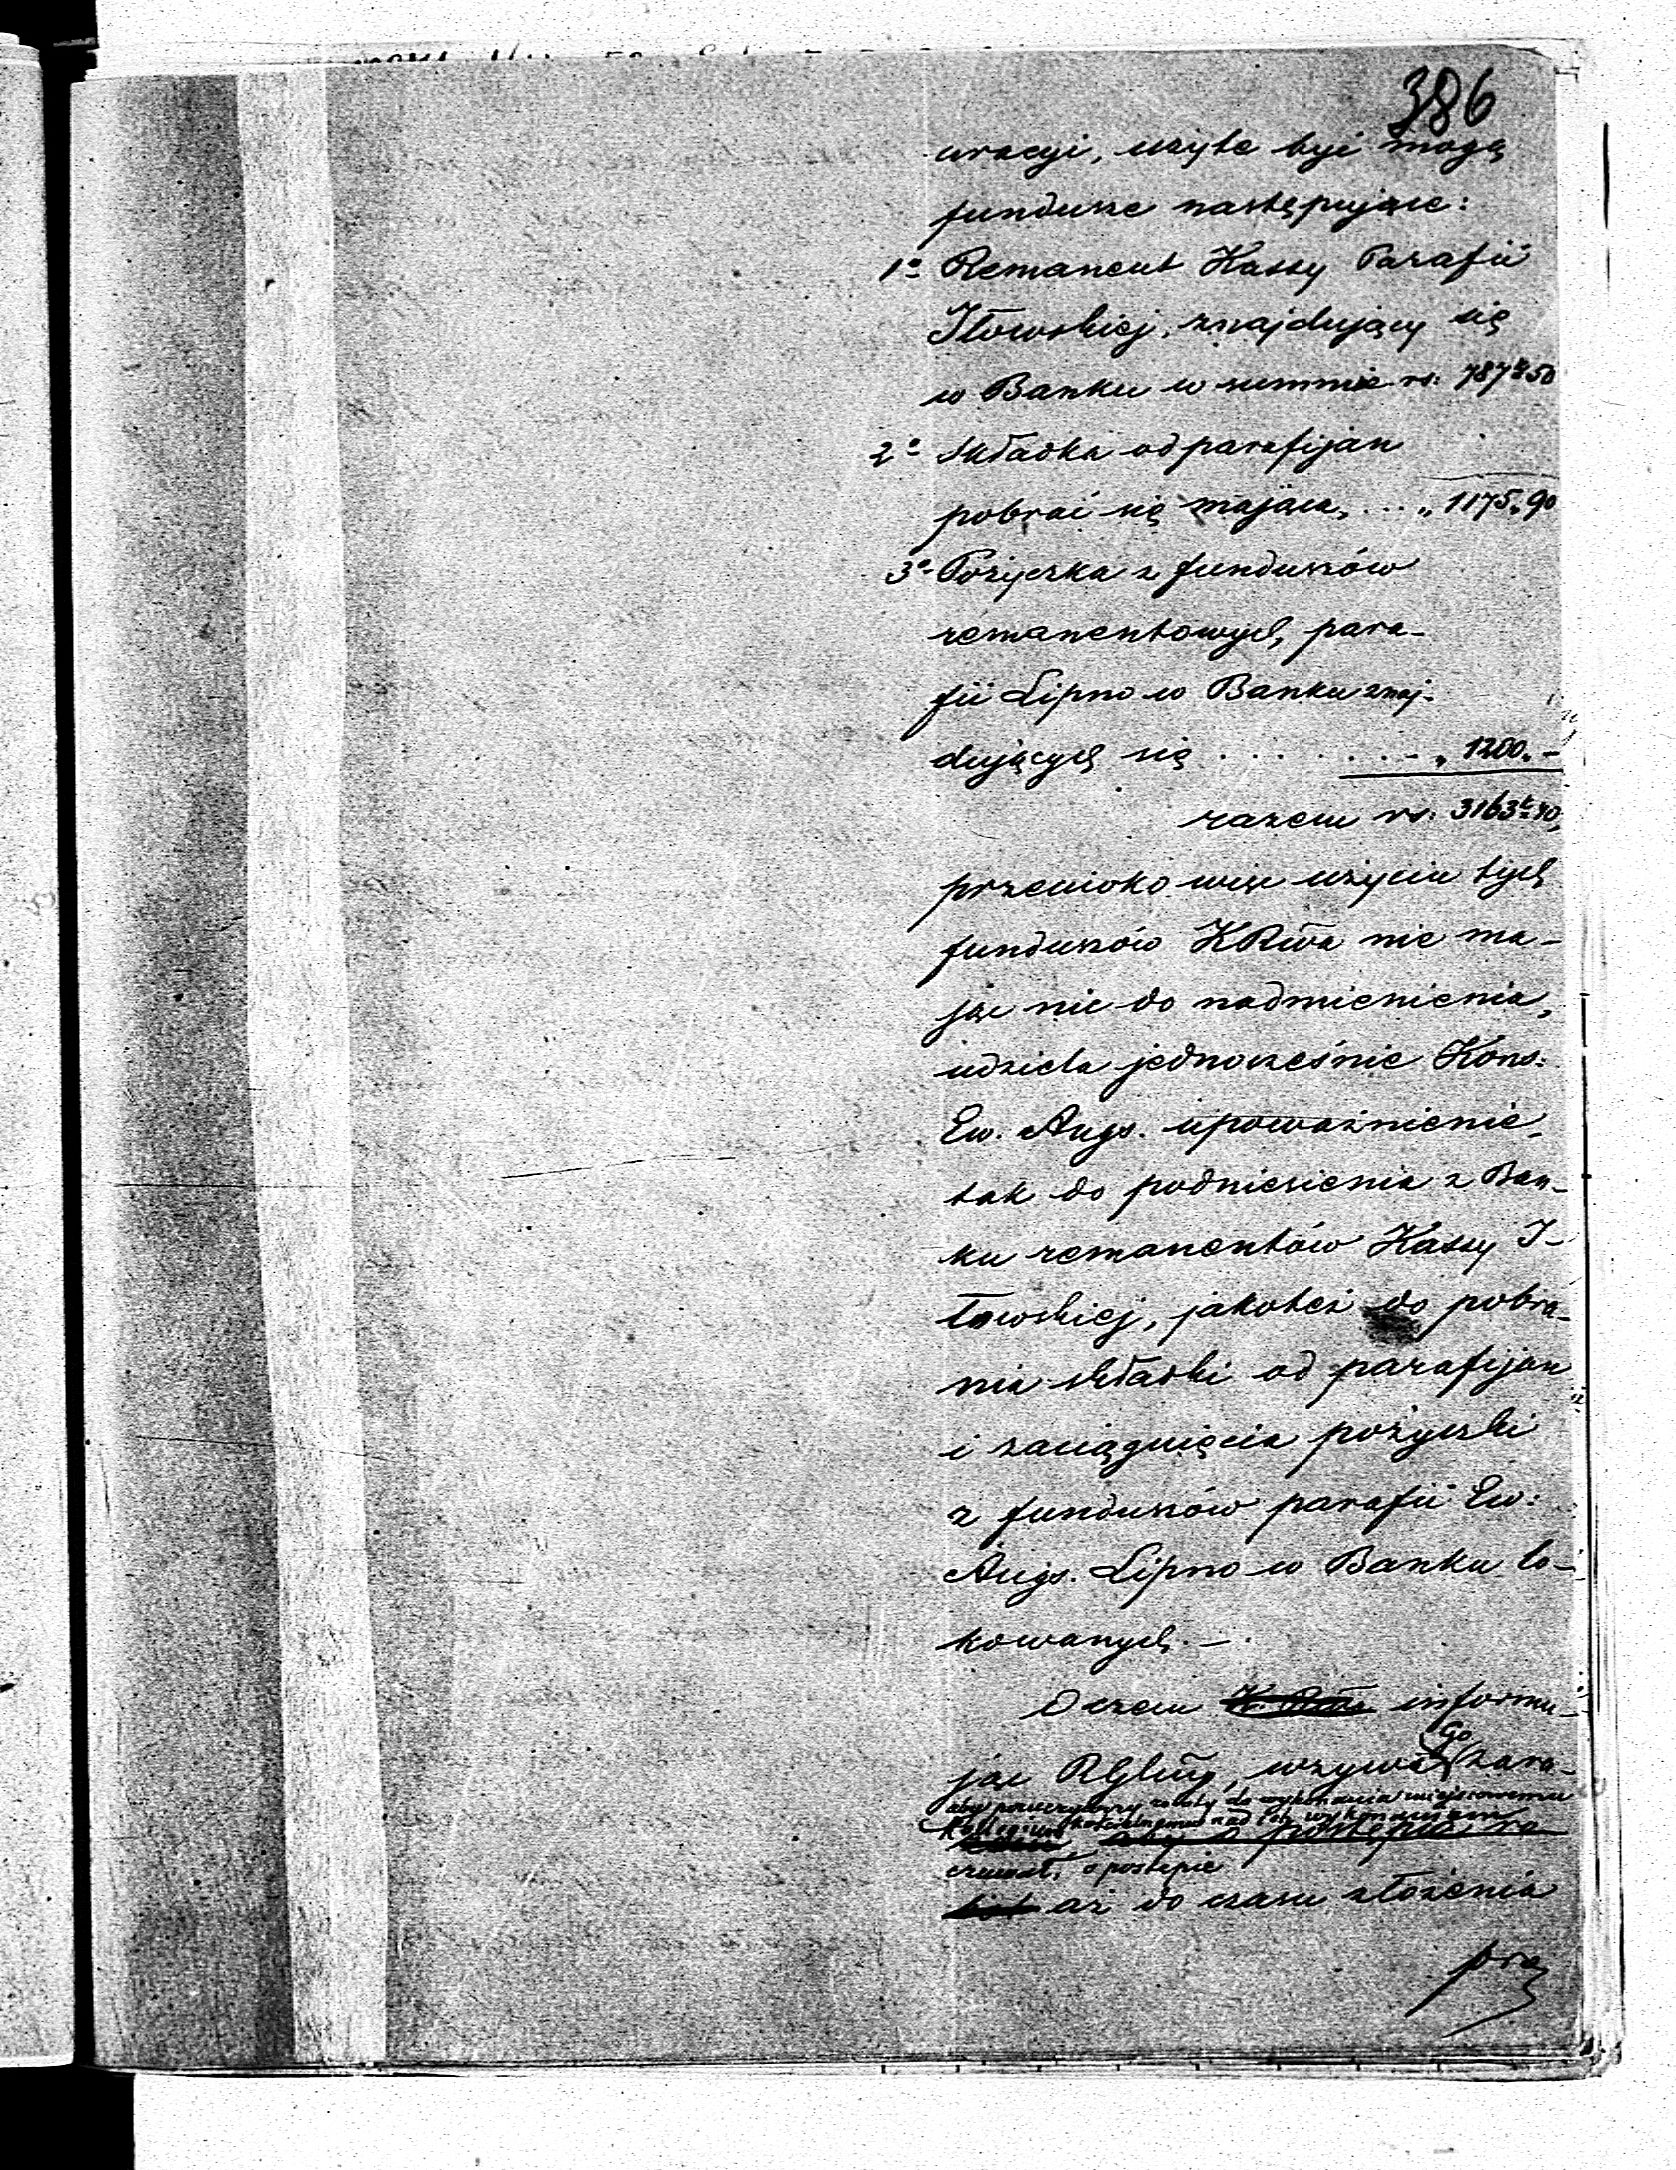 386
uracyi, użyte być mogą
fundusze następujące:
1o Remanent Kassy Parafii
Iłowskiej, znajdujący się
w Banku w summie rs: 787 k 50
2o Składka od parafijan
pobrać się mająca, . . . „ 1175. 90
3o Pożyczka z funduszów
remanentowych, para-
fii Lipno w Banku znaj-
dujących się . . . . . . . „ 1200. –
razem rs: 3163 k 40,
przeciwko więc użyciu tych
funduszów KRwa nie ma-
jąc nic do nadmienienia,
udziela jednocześnie Kons:
Ew. Augs. upoważnienie
tak do podniesienia z Ban-
ku remanentów Kassy I-
łowskiej, jakoteż do pobra-
nia składki od parafijan
i zaciągnięcia pożyczki
z funduszów parafii Ew:
Augs. Lipno w Banku lo-
kowanych. –
O czem informu-
jąc RGbny, wzywa Go zara-
aby poruczywszy roboty do wykonania miejscowemu
Kollegium kościelnemu nad ich wykonaniem
aby o postępie ro
czuwał, o postępie
bot aż do czasu złożenia
prze